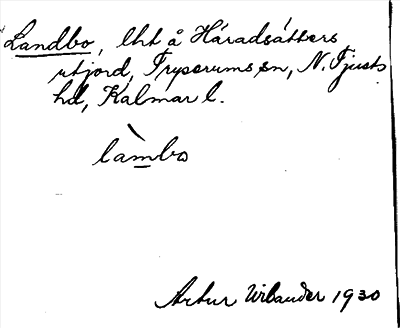 Landbo, lht å Häradsätters
utjord, Tryserums sn, N. Tjusts
hd, Kalmar l.
làmbo
Artur 1930